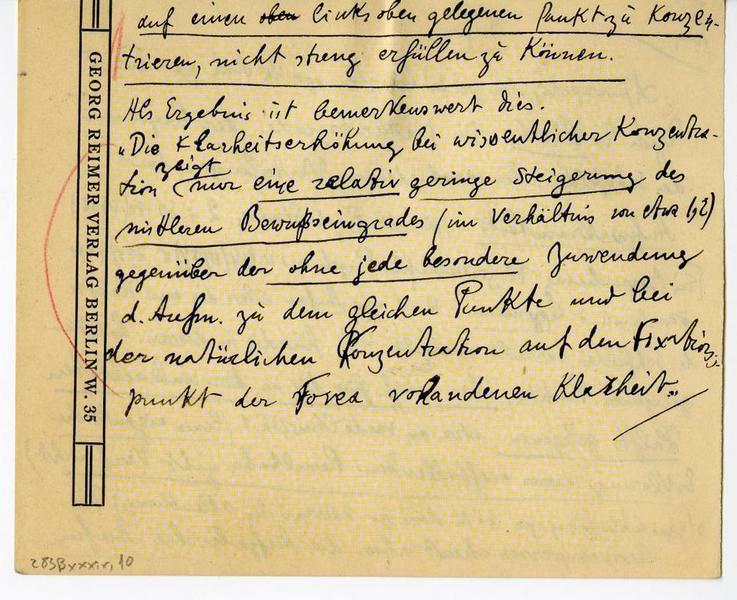 auf einen oben links oben gelegenen Punkt zu Konzen-
trieren, nicht streng erfüllen zu Können.
Als Ergebnis ist bemerkenswert dies.
„Die Klarheitserhöhung bei wissentlicher Konzentra-
zeigt
tion nur eine relativ geringe Steigerung des
mittleren Bewußseingrades (im Verhältnis von etwa 1,2)
gegenüber der ohne jede besondere Zuwendung
d. Aufm. zu dem gleichen Punkte und bei
der natürlichen Konzentration auf den Fixations-
punkt der Fovea vorhandenen Klarheit."
GEORG REIMER VERLAG BERLIN W. 35